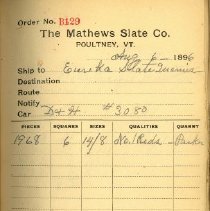 Order No. B129
The Mathews Slate Co.
POULTNEY, VT.
Aug 6 1896
Ship to Eureka Slate
Destination
Route
Notify
Car D & H # 3080
PIECES SQUARES SIZES QUALITIES QUARRY
1968 6 14/8 No. 1 Reds